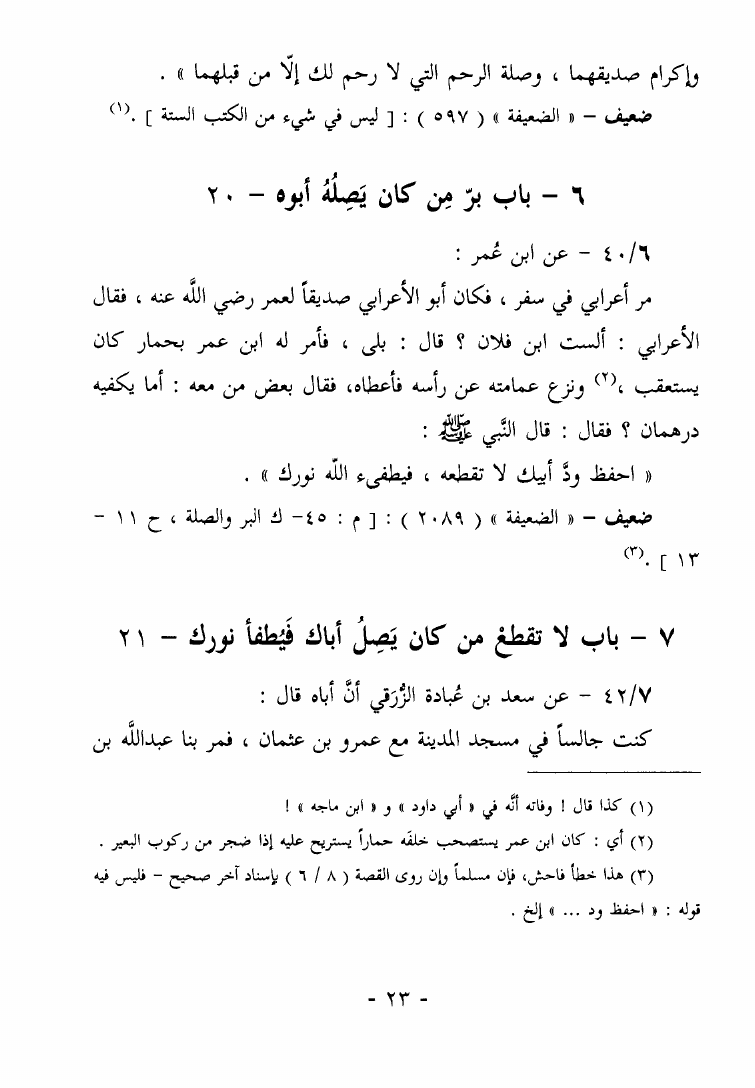 وإكرام صديقهما ، وصلة الرحم التي لا رحم لك إلّا من قبلهما » .
ضعيف – « الضعيفة » ( ٥٩٧ ) : [ ليس في شيء من الكتب الستة ] .(١)
٦ – باب برّ مِن كان يَصِلُهُ أبوه – ٢٠
٤٠/٦ – عن ابن عُمر :
مر أعرابي في سفر ، فكان أبو الأعرابي صديقاً لعمر رضي اللَّه عنه ، فقال
الأعرابي : ألست ابن فلان ؟ قال : بلى ، فأمر له ابن عمر بحمار كان
يستعقب ،(٢) ونزع عمامته عن رأسه فأعطاه، فقال بعض من معه : أما يكفيه
درهمان ؟ فقال : قال النَّبي ﷺ :
« احفظ ودَّ أبيك لا تقطعه ، فيطفىء اللّه نورك » .
ضعيف – « الضعيفة » ( ٢٠٨٩ ) : [ م : ٤٥– ك البر والصلة ، ح ١١ –
١٣ ] .(٣)
٧ – باب لا تقطعْ من كان يَصِلُ أباك فَيُطفأ نورك – ٢١
٤٢/٧ – عن سعد بن عُبادة الزُّرَقي أنَّ أباه قال :
كنت جالساً في مسجد المدينة مع عمرو بن عثمان ، فمر بنا عبداللَّه بن
(١) كذا قال ! وفاته أنَّه في « أبي داود » و « ابن ماجه » !
(٢) أي : كان ابن عمر يستصحب خلفَه حماراً يستريح عليه إذا ضجر من ركوب البعير .
(٣) هذا خطأ فاحش، فإن مسلماً وإن روى القصة ( ٨ / ٦ ) بإسناد آخر صحيح – فليس فيه
قوله : « احفظ ود ... » إلخ .
- ٢٣ -